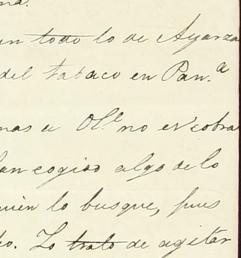 un todo lo de Ayarza
del Tabaco en Pan.ª
nas a Ol.ᵉ no es cobra
an cogido algo de lo
uien lo busque, pues
o. Lo trato de agitar